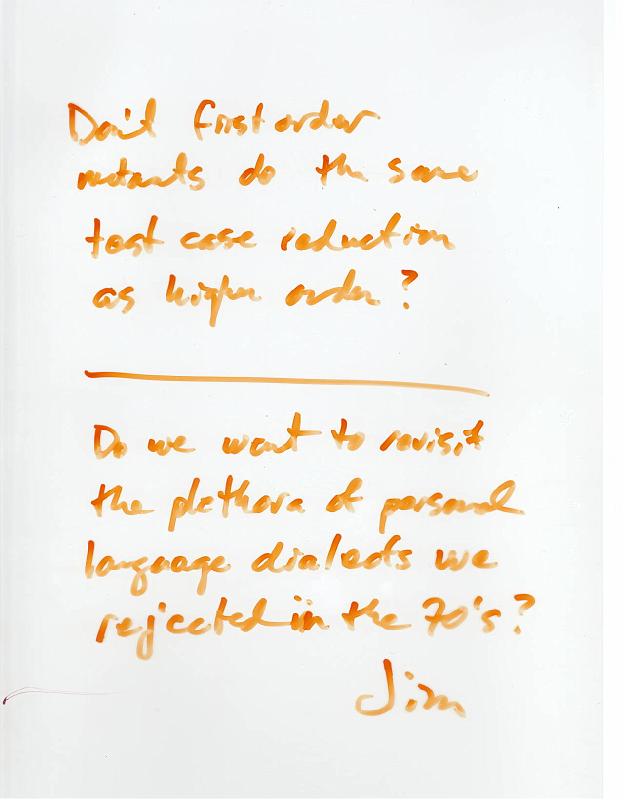 Don't first order
mutants do the same
test case reduction
as higher order?
Do we want to revisit
the plethora of personal
language dialects we
rejected in the 70's?
Jim